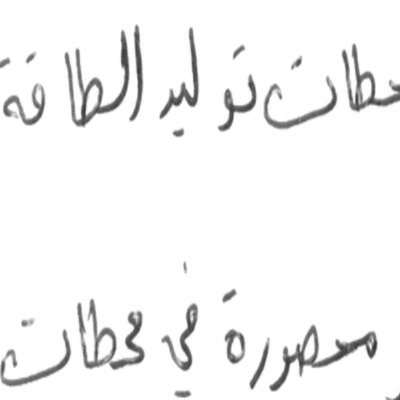 محطات توليد الطاقة
محصورة في محطات